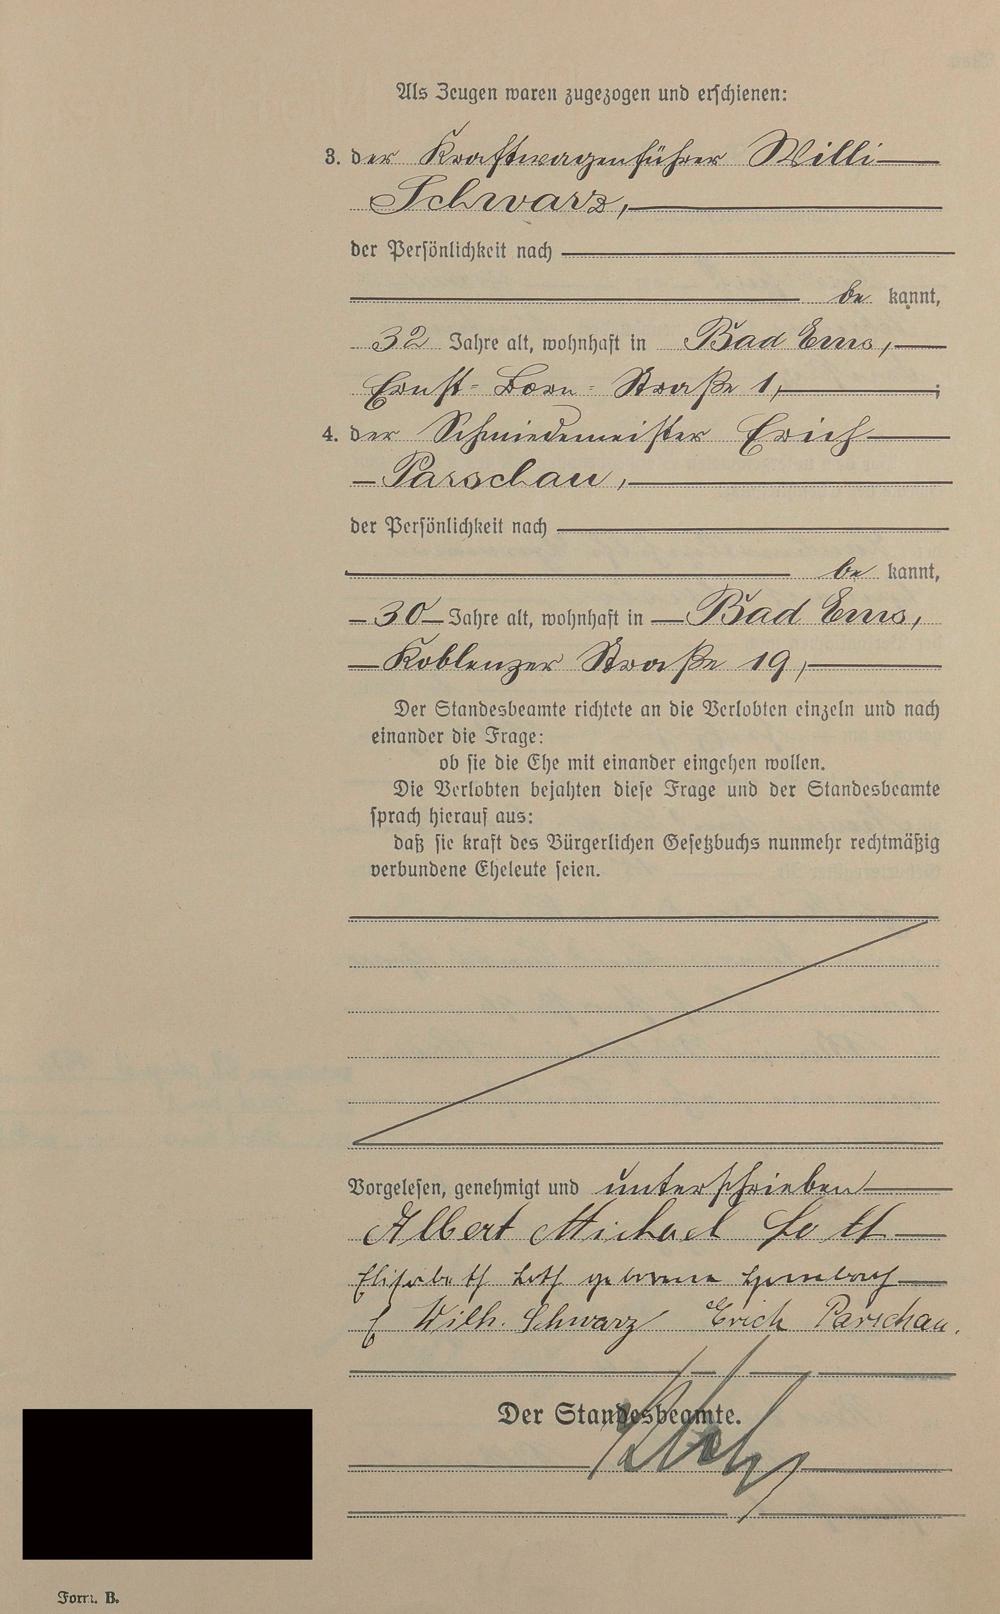 Als Zeugen waren zugezogen und erschienen:
3. der Kraftwagenführer Willi
Schwarz,
der Persönlichkeit nach
be kannt,
32 Jahre alt, wohnhaft in Bad Ems,
Ernst-Born-Straße 1, ;
4. der Schmiedemeister Erich
Parschau,
der Persönlichkeit nach
be kannt,
30 Jahre alt, wohnhaft in Bad Ems,
Koblenzer Straße 19,
Der Standesbeamte richtete an die Verlobten einzeln und nach
einander die Frage:
ob sie die Ehe mit einander eingehen wollen.
Die Verlobten bejahten diese Frage und der Standesbeamte
sprach hierauf aus:
daß sie kraft des Bürgerlichen Gesetzbuchs nunmehr rechtmäßig
verbundene Eheleute seien.
Vorgelesen, genehmigt und unterschrieben
Albert Michael Loth
Elisabeth Loth geborene
Wilh. Schwarz Erich Parschau.
Der Standesbeamte.
Form. B.